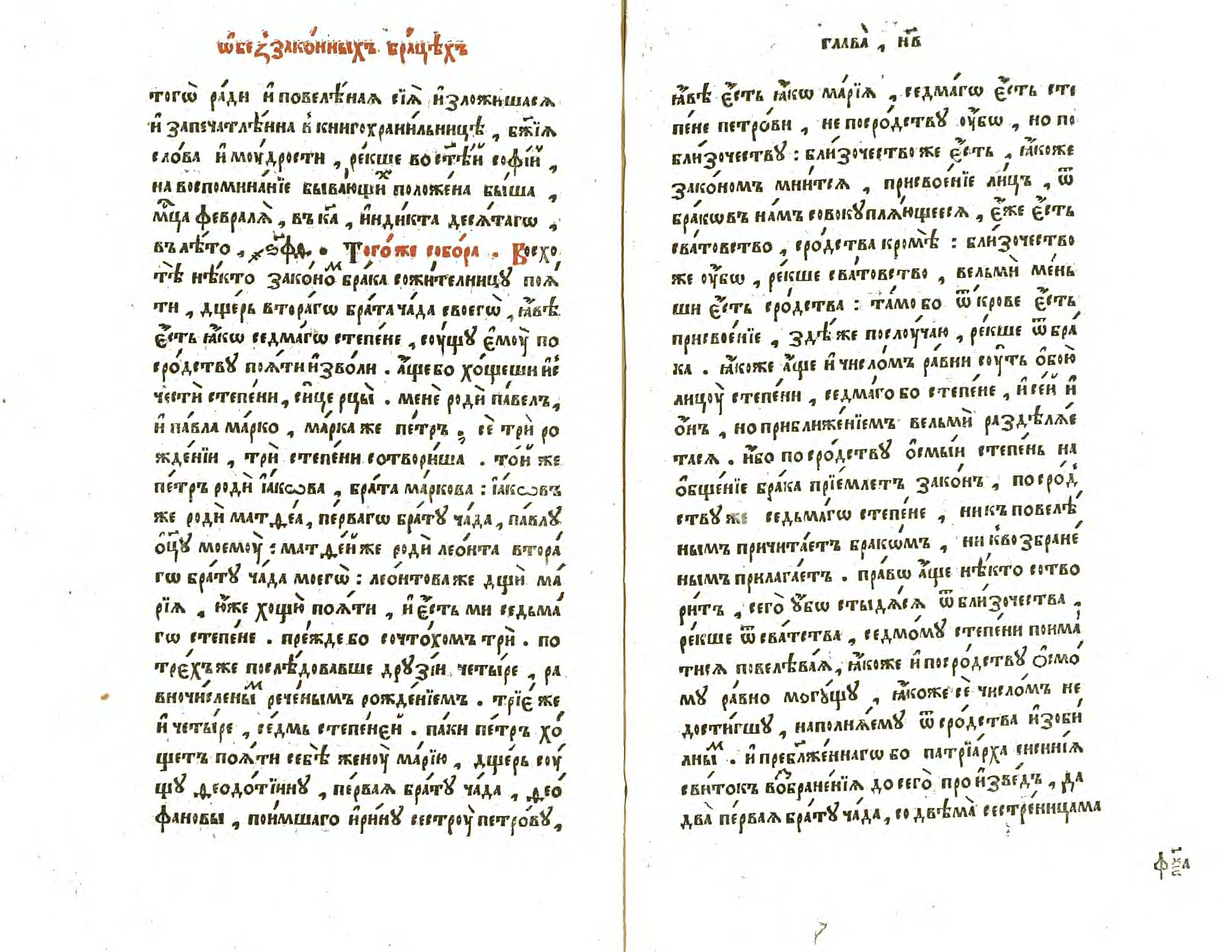 ѡ҆беззако́нныхъ бра́цѣхъ
тогѡ̀ ра́ди и҆ повелѣ́ная сїѧ̀ и҆зложи́шасѧ
и҆ запечатлѣ́нна в̾ книгохрани́льницѣ , бж҃їѧ
сло́ва и҆ мꙋ́дрости , ре́кше во ст҃ѣ́й софі́и ,
на воспомина́нїе быва́ющи̑х положе́на бы́ша ,
мц҃а февралѧ̀ , въ к҃а , и҆нди́кта десѧ́тагѡ ,
въ лѣ́то , ҂ѕ҃фд . Того́же собо́ра . Восхо
тѣ̀ нѣ́кто зако́но̑м бра́ка сожи́телницꙋ поѧ̀
ти , дще́рь втора́гѡ бра́та ча́да своегѡ̀ , ꙗ҆́вѣ
є҆́сть ꙗ҆́кѡ седма́гѡ степе́не , сꙋ́щꙋ є҆мꙋ̀ по
сро́дствꙋ поѧ́ти и҆зво́ли . а҆́ще бо хо́щеши и҆с̾
че́сти степе́ни , си́це рцы̀ . менѐ родѝ па́велъ ,
и҆ па́вла ма́рко , ма́рка же пе́тръ , сѐ трѝ ро
жде́нїи , трѝ степе́ни сотвори́ша . то́й же
пе́тръ родѝ і҆а́кѡва , бра́та ма́ркова : і҆а́кѡвъ
же родѝ матѳе́а , пе́рвагѡ бра́тꙋ ча́да , па́влꙋ
ѻ҆ц҃ꙋ̀ моемꙋ̀ : матѳе́й же родѝ лео́нта втора́
гѡ бра́тꙋ ча́да моегѡ̀ : лео́нтова же дщѝ ма
рі́ѧ , ю҆́же хощꙋ̀ поѧ́ти , и҆ є҆́сть ми седьма́
гѡ степе́не . пре́жде бо сочто́хомъ трѝ . по
тре́хъ же послѣ́довавше дрꙋзі́и четы́ре , ра
вночи́слены̑м рече́нымъ рожде́нїемъ . трїѐ же
и҆ четы́ре , се́дмь степе́ней . па́ки пе́тръ хо́
щетъ поѧ́ти себѣ̀ женꙋ̀ марі́ю , дще́рь сꙋ́
щꙋ ѳеодоті́инꙋ , пе́рваѧ бра́тꙋ ча́да , ѳео
фа́новы , пои́мшаго и҆ри́нꙋ сестрꙋ̀ петро́вꙋ ,
глава̀ , н҃в
ꙗ҆́вѣ є҆́сть ꙗ҆́кѡ марі́ѧ , седма́гѡ є҆́сть сте
пене петро́ви , не по сро́дствꙋ ᲂу҆́бѡ , но по
бли́зочествꙋ : бли́зочество же є҆́сть , ꙗ҆́коже
зако́номъ мни́тсѧ , присвое́нїе ли́цъ , ѿ
бра́кѡвъ на́мъ совокꙋплѧ́ющеесѧ , є҆́же є҆́сть
сва́товство , сро́дства кро́мѣ : бли́зочество
же ᲂу҆́бѡ , ре́кше сва́товство , вельмѝ ме́нь
ши є҆́сть сро́дства : та́мо бо ѿ кро́ве є҆́сть
присвое́нїе , здѣ́ же послꙋ́чаю , ре́кше ѿ бра́
ка . ꙗ҆́коже а҆́ще и҆ число́мъ ра́вни сꙋ́ть ѻ҆бою̀
лицꙋ̀ степе́ни , седма́го бо степе́не , и҆ се́й и҆
ѻ҆́нъ , но приближе́нїемъ вельмѝ раздѣлѧ́е
тасѧ . и҆́бо по сро́дствꙋ ѻ҆смы́и степе́нь на
ѻ҆бще́нїе бра́ка прїе́млетъ зако́нъ , по сро́д
ствꙋ же седьма́гѡ степе́не , ни къ повелѣ́
нымъ причита́етъ бра́кѡмъ , ни к̾ возбране́
нымъ прилага́етъ . пра́вѡ а҆́ще нѣ́кто сотво
ри́тъ , сего̀ ᲂу҆́бѡ стыдѧ́сѧ ѿ бли́зочества ,
ре́кше ѿ сва́тства , седмо́мꙋ степени поима́
тисѧ повелѣва́ѧ , ꙗ҆́коже и҆ по сро́дствꙋ ѻ҆смо́
мꙋ ра́вно могꙋ́щꙋ , ꙗ҆́коже сѐ число́мъ не
дости́гшꙋ , наполнѧ́емꙋ ѿ сро́дства и҆зоби́
лны̑м . и҆ пребл҃же́ннагѡ бо патрїа́рха сисинї́ѧ
сви́токъ во̑збране́нїѧ до сего̀ произве́дъ , да
два̀ пе́рваѧ бра́тꙋ ча́да , со двѣма̀ сестре́ницама